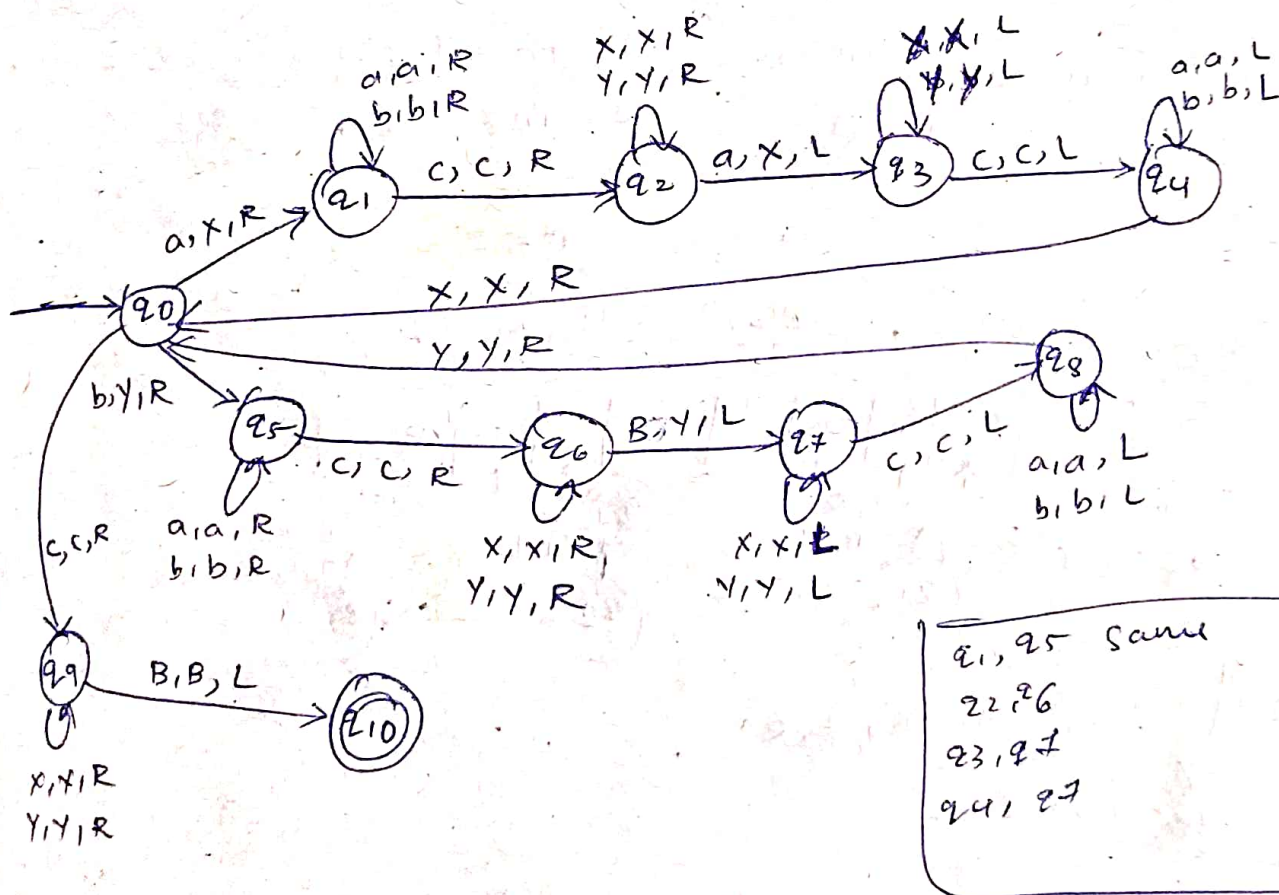 a, a, R
b, b, R
X, X, R
Y, Y, R
X, X, L
Y, Y, L
a, a, L
b, b, L
q1
c, c, R
q2
a, X, L
q3
c, c, L
q4
a, X, R
q0
X, X, R
Y, Y, R
q8
b, Y, R
q5
c, c, R
q6
B, Y, L
q7
c, c, L
a, a, L
b, b, L
c, c, R
a, a, R
b, b, R
X, X, R,
Y, Y, R
X, X, L
Y, Y, L
q9
B, B, L
q10
X, X, R
Y, Y, R
q1, q5 same
q2, q6
q3, q7
q4, q7